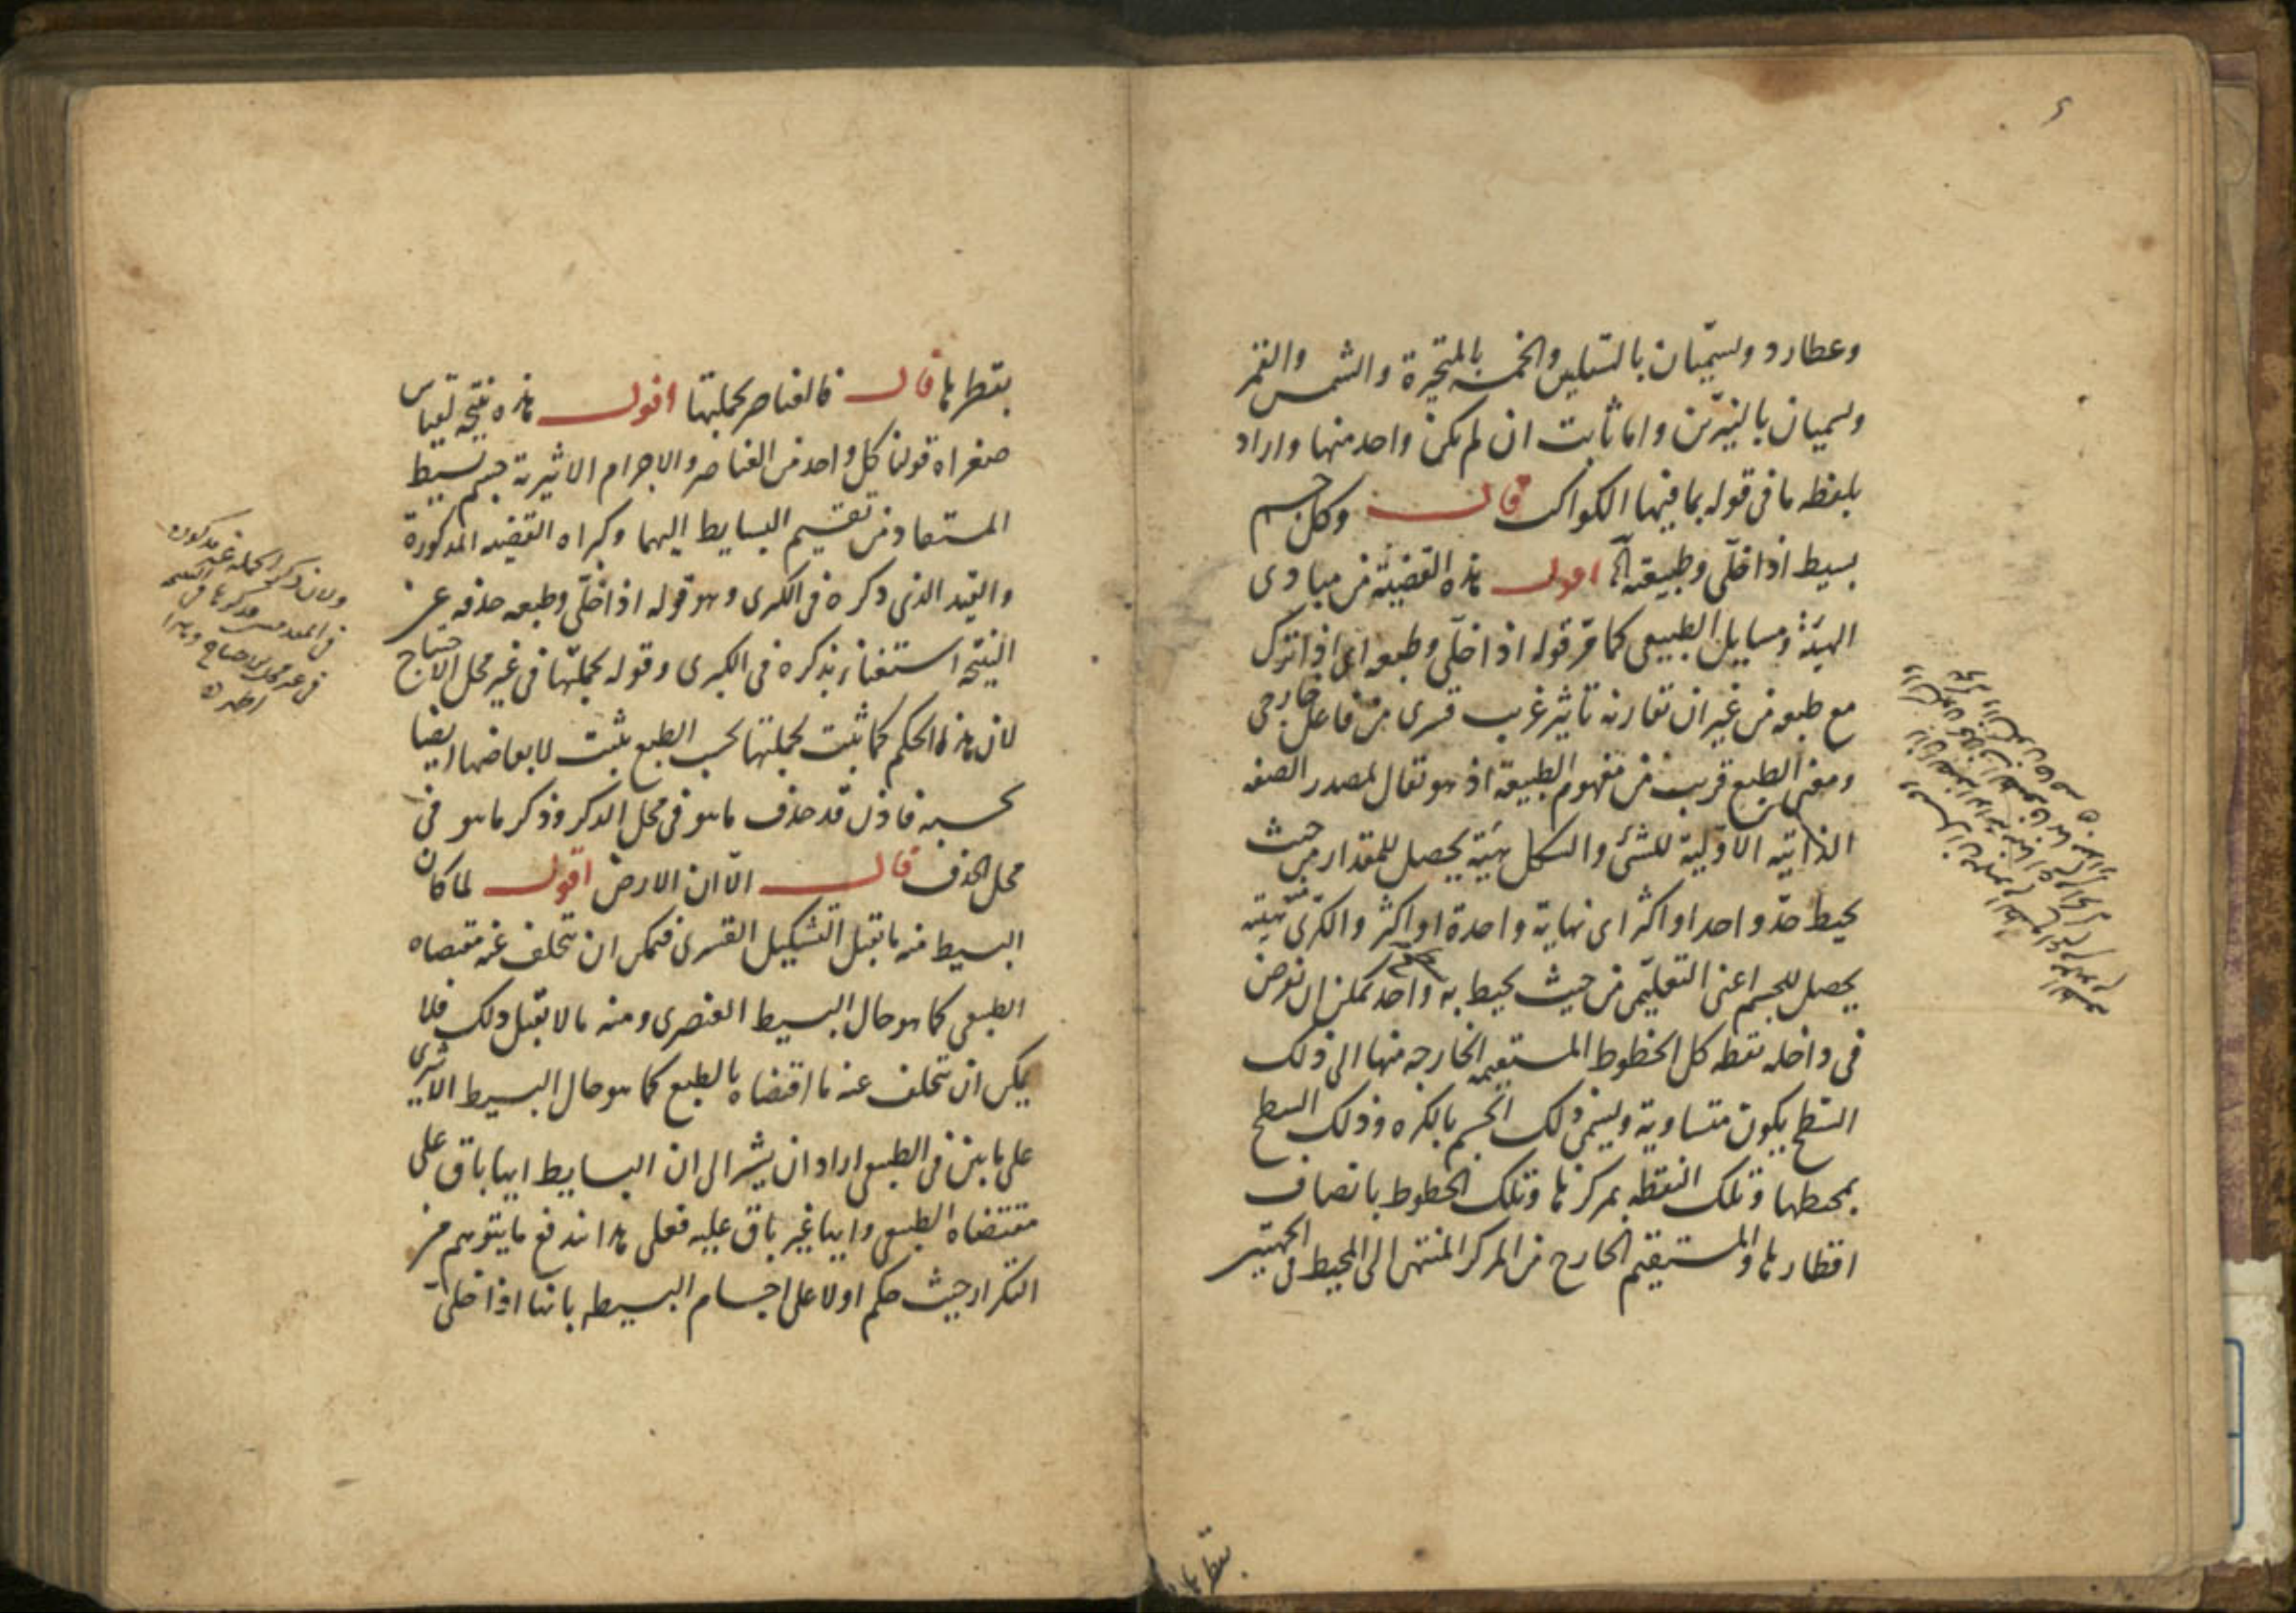 وعطارد ويسميان بالسفليين والخمسة بالمتحيرة والشمس والقمر
ويسميان بالنيرين واما ثابت ان لم يكن واحد منها واراد
بلفظه ما فى قوله بما فيها الكواكب قال وكل جسم
بسيط اذا خلى وطبيعته الخ اقول هذه القضية من مبادى
الهيئة ومسايل الطبيعى كما مر قوله اذا خلى وطبعه اى اذا ترك
مع طبعه من غير ان تقارنه تاثير غريب قسرى من فاعل خارجى
ومعنى الطبع قريب من مفهوم الطبيعة اذ هو يقال لمصدر الصفه
الذاتيه الاولية للشئ والشكل هيئة يحصل للمقدار من حيث
يحيط حد واحد او اكثر اى نهاية واحدة او اكثر والكرى هيئة
يحصل للجسم اعنى التعليمى من حيث يحيط به واحد يمكن ان يفرض
فى داخله نقطه كل الخطوط المستقيمه الخارجه منها الى ذلك
السطح يكون متساوية ويسمى ذلك الجسم بالكره وذلك السطح
بمحيطها وتلك النقطه بمركزها وتلك الخطوط بانصاف
اقطارها والمستقيم الخارج من المركز المنتهى الى المحيط فى الجهتين
بقطرها
بقطرها قال فالعناصر بجملتها اقول هذه نتيجه لقياس
صغراه قولنا كل واحد من العناصر والاجرام الاثيرية جسم بسيط
المستفاد من تقسيم البسايط اليهما وكبراه القضيه المذكورة
والقيد الذى ذكره فى الكبرى وهو قوله اذا خلى وطبعه حذفه عن
النتيجه استغناء بذكره فى الكبرى وقوله بجملتها فى غير محل الاحتياج
لان هذا الحكم كما ثبت بجملتها بحسب الطبع يثبت لابعاضها ايضا
بحسبه فاذن قد حذف ما هو فى محل الذكر وذكر ما هو فى
محل الحذف قال الا ان الارض اقول لما كان
البسيط منه ما يقبل التشكيل القسرى فيمكن ان يتخلف عنه مقتضاه
الطبيعى كما هو حال البسيط العنصرى ومنه ما لا يقبل ذلك فلا
يمكن ان يتخلف عنه ما اقتضاه بالطبع كما هو حال البسيط الاثيرى
على ما بين فى الطبيعى اراد ان يشير الى ان البسايط ايها باق على
مقتضاه الطبيعى وايها غير باق عليه فعلى هذا اندفع ما يتوهم من
التكرار حيث حكم اولا على اجسام البسيطه بانها اذا خلى